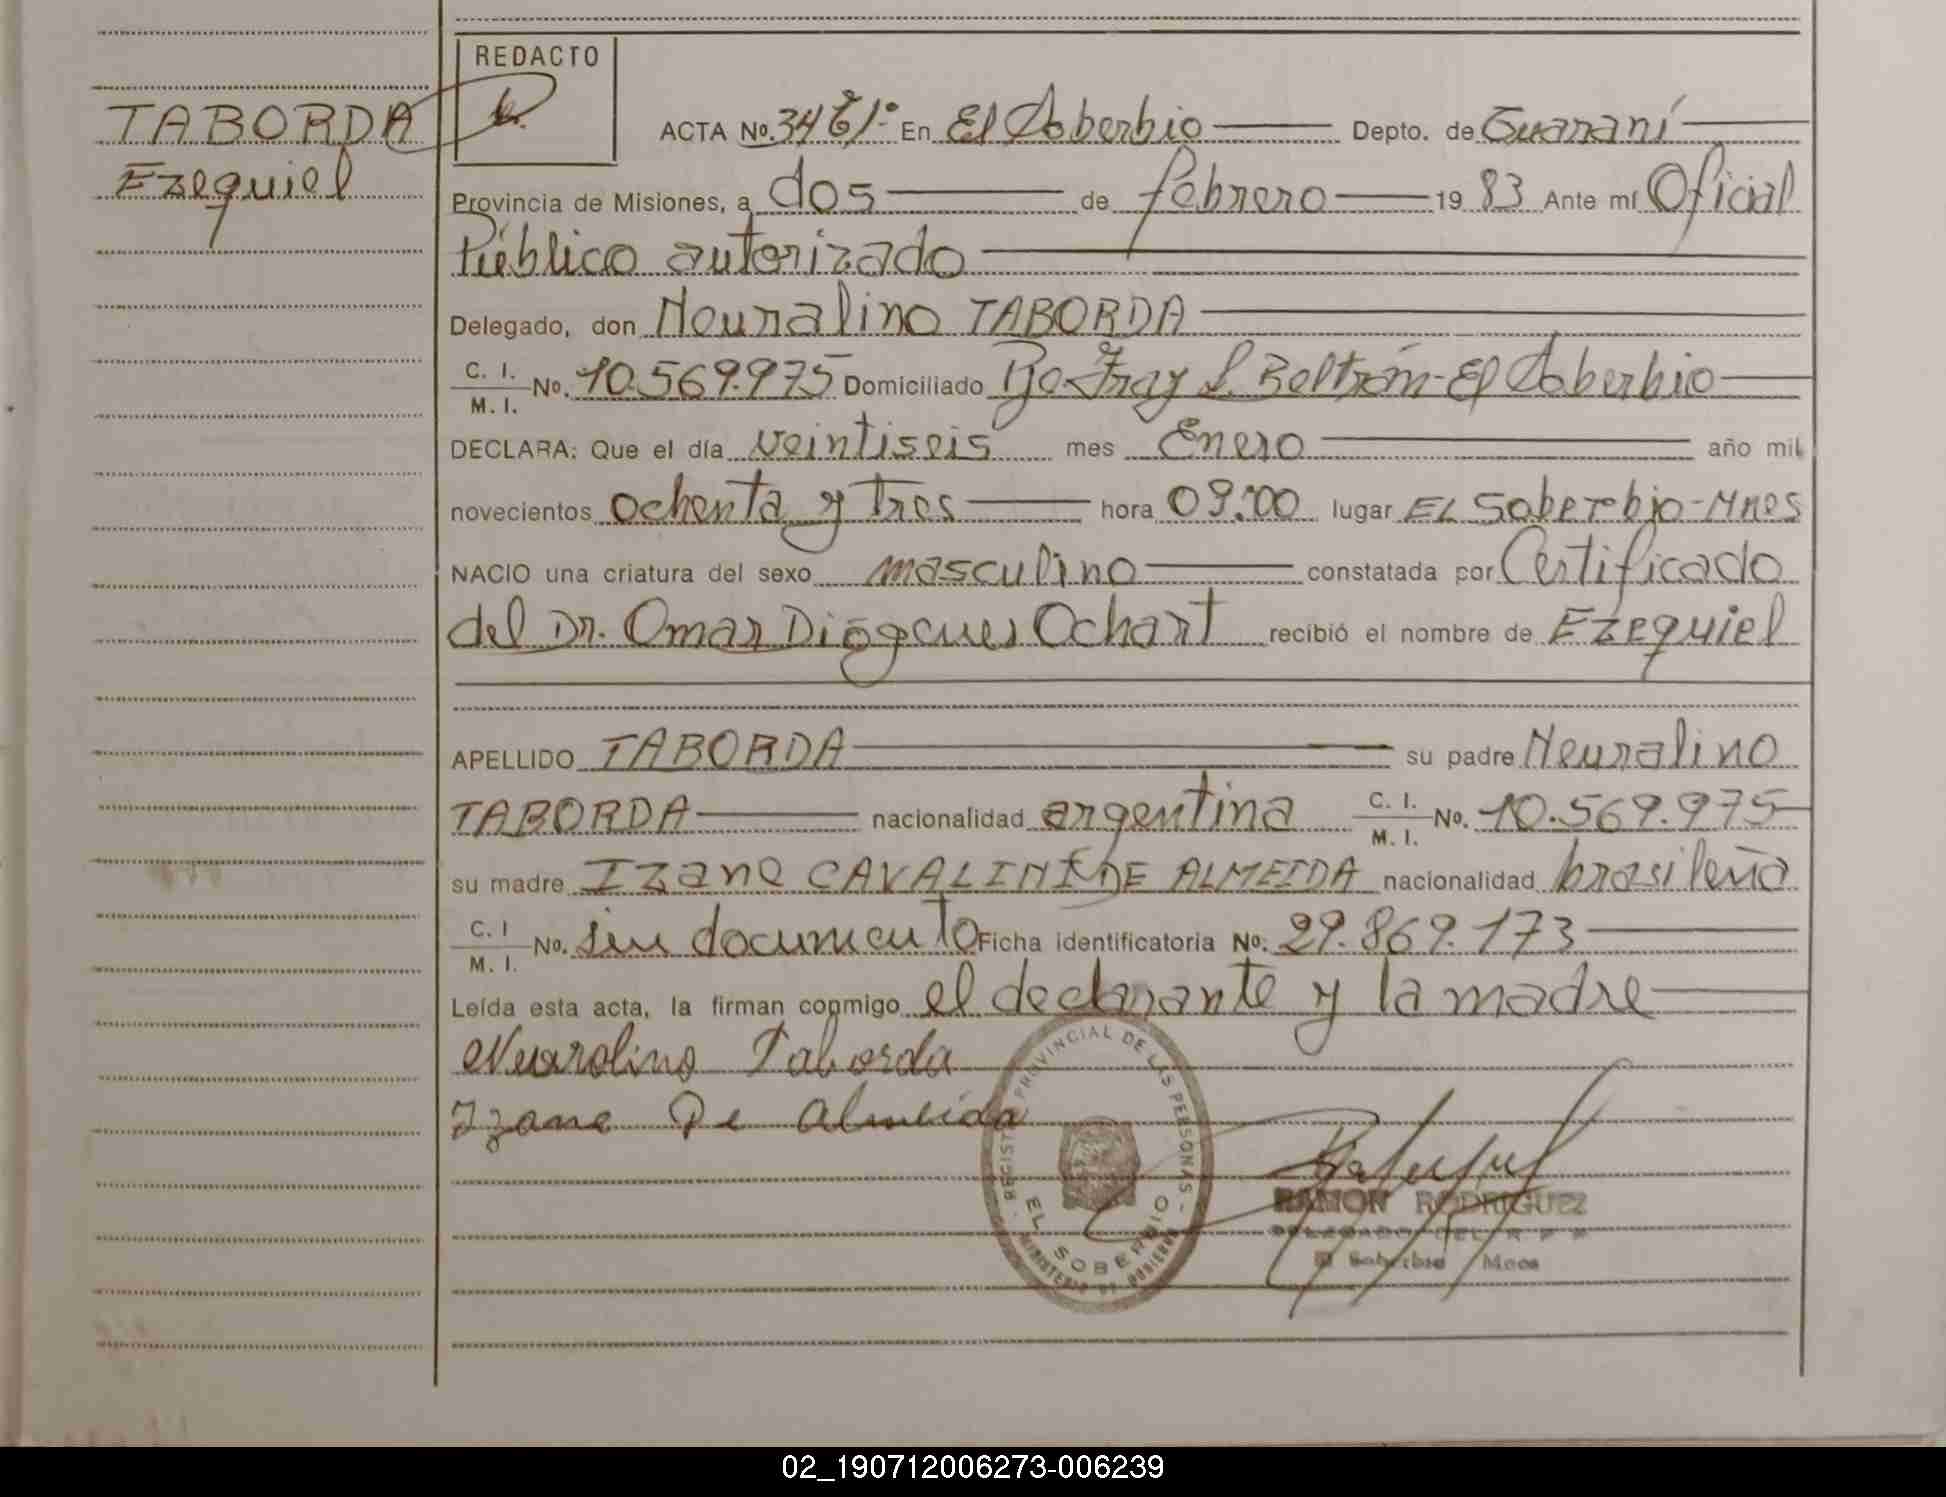 REDACTO
TABORDA
Ezequiel
ACTA No. 34 En El Soberbio Depto. de Guaraní
Provincia de Misiones, a dos de febrero 1983 Ante mí Oficial
Público autorizado
Delegado, don Neuralino TABORDA
C. I.
M. I. No. 10.569.975 Domiciliado Bo. Fray L. Beltrán-El Soberbio
DECLARA: Que el día veintiseis mes Enero año mil
novecientos ochenta y tres hora 09:00 lugar EL Soberebio-Mnes
NACIO una criatura del sexo masculino constatada por Certificado
del Dr. Omar Diógenes Ochart recibió el nombre de Ezequiel
APELLIDO TABORDA su padre Neuralino
TABORDA nacionalidad argentina C. I. M. I. No. 10.569.975
su madre Izane CAVALINI DE ALMEIDA nacionalidad brasileña
C. I
M. I. No. sin documento Ficha identificatoria No. 29.869.173
Leída esta acta, la firman conmigo el declarante y la madre
Neurolino Taborda
Izane De Almeida
REGISTRO PROVINCIAL DE LAS PERSONAS
EL SOBERBIO
MINISTERIO DE GOBIERNO
RAMON RODRIGUEZ
DELEGADO DEL R P P
El Soberbio Mnes
02_190712006273-006239